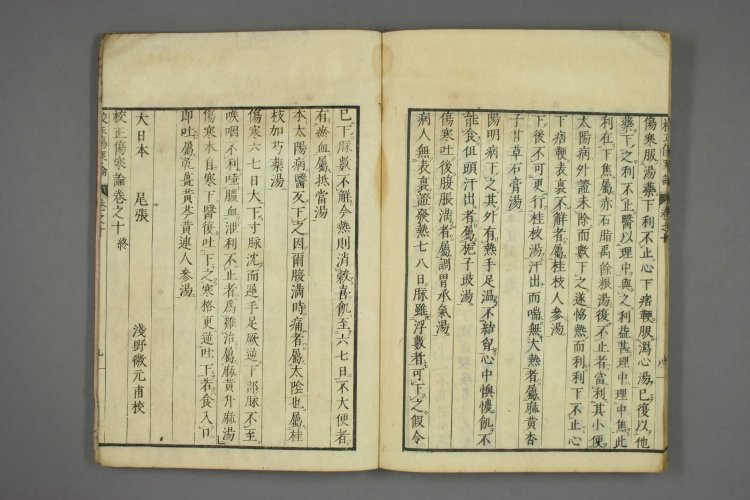 傷寒服湯藥下利不止心下痞鞕服瀉心湯已復以他
藥下之利不止醫以理中與之利益甚理中理中焦此
利在下焦屬赤石脂禹餘粮湯復不止者當利其小便
太陽病外證未除而數下之遂協熱而利利下不止心
下痞鞕表裏不解者屬桂枝人參湯
下後不可更行桂枝湯汗出而喘無大熱者屬麻黃杏
子甘草石膏湯
陽明病下之其外有熱手足溫不結胷心中懊憹飢不
能食但頭汗出者屬梔子豉湯
傷寒吐後腹脹滿者屬調胃承氣湯
病人無表裏證發熱七八日脉雖浮數者可下之假令
已下脉數不解今熱則消穀喜飢至六七日不大便者
有瘀血屬抵當湯
本太陽病醫反下之因爾腹滿時痛者屬太陰也屬桂
枝加芍藥湯
傷寒六七日大下寸脉沈而遲手足厥逆下部脉不至
喉咽不利唾膿血泄利不止者爲難治屬麻黃升麻湯
傷寒本自寒下醫復吐下之寒格更逆吐下若食入口
即吐屬乾薑黃芩黃連人參湯
大日本 尾張 淺野徽元甫校
校正傷寒論卷之十終
校正傷寒論 卷之十 九